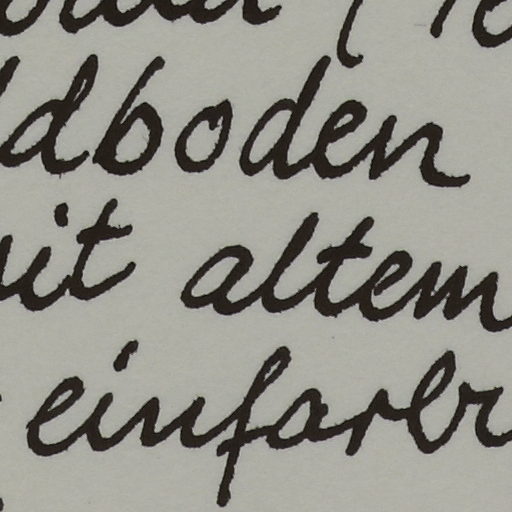 dboden
it altem
einfarb